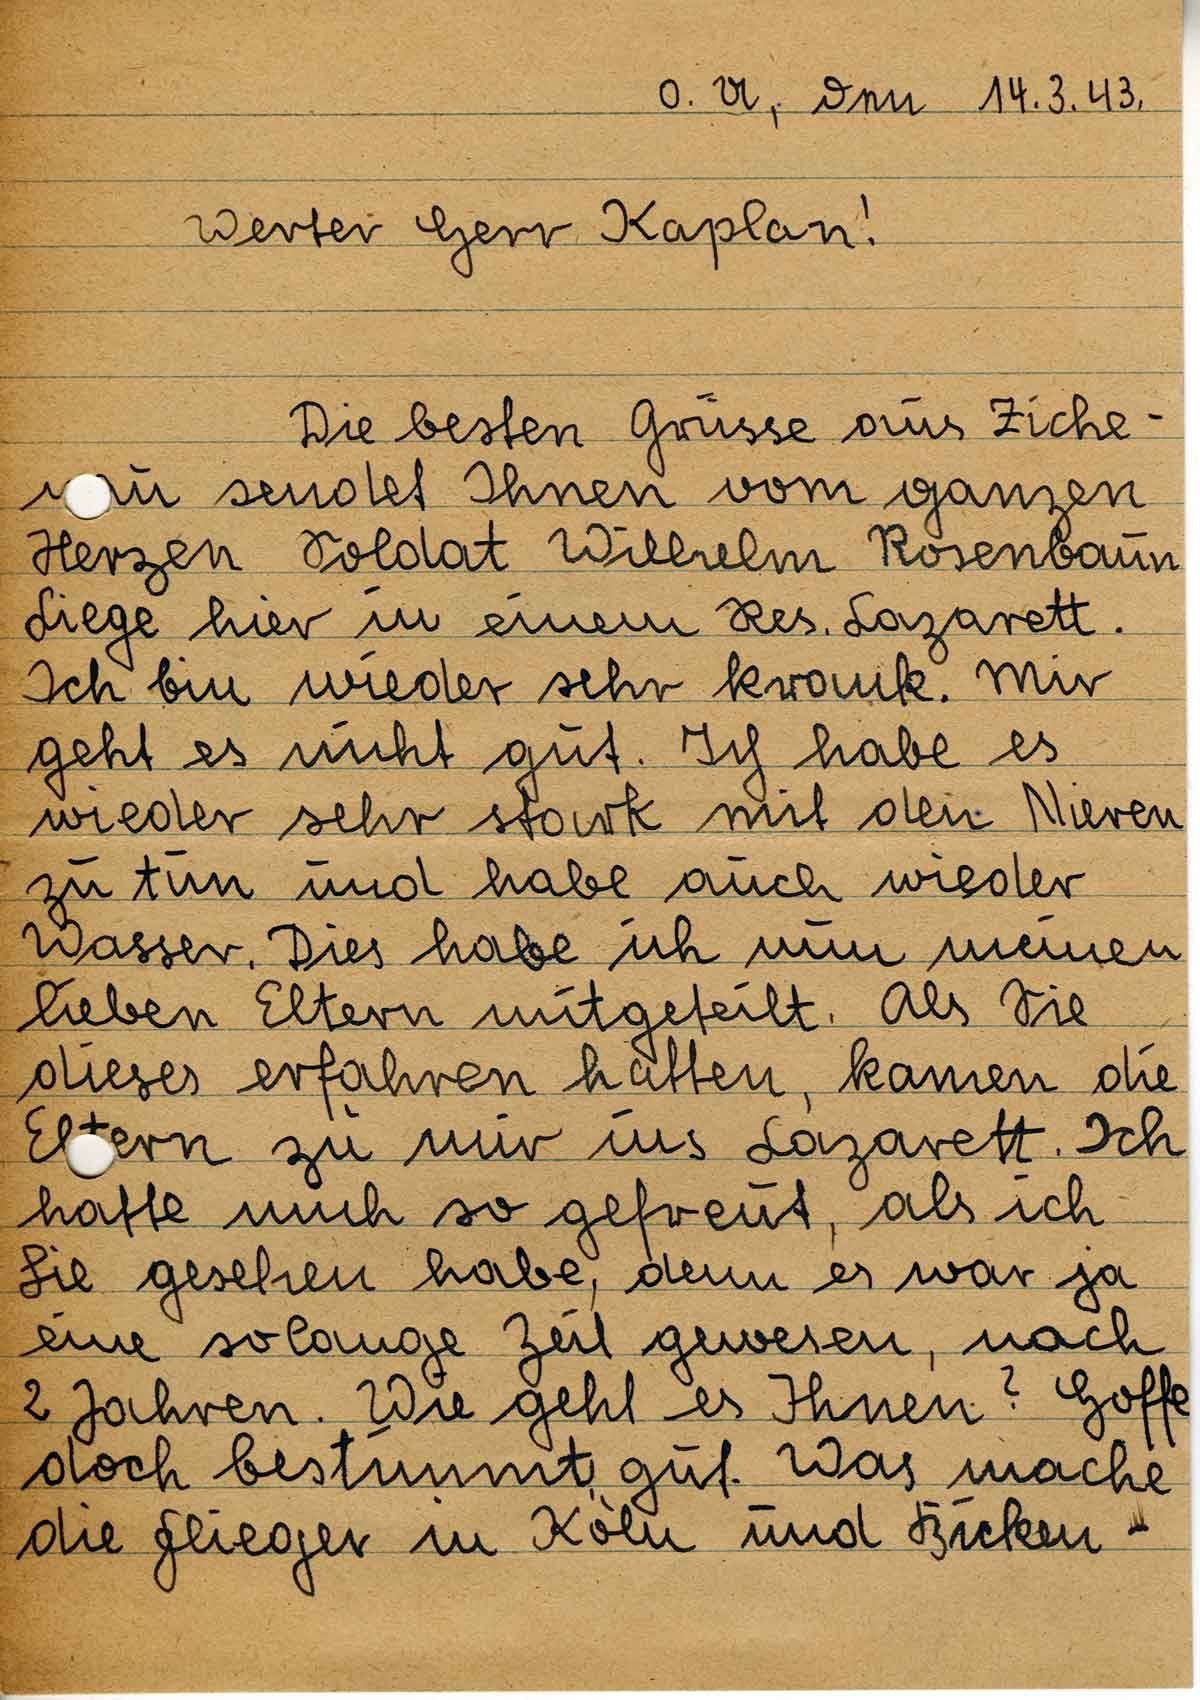 O. U, den 14.3.43.
Werter Herr Kaplan!
Die besten Grüsse aus Ziche-
nau sendet Ihnen vom ganzen
Herzen Soldat Wilhelm Rosenbaum
Liege hier in einem Res. Lazarett.
Ich bin wieder sehr krank. Mir
geht es nicht gut. Ich habe es
wieder sehr stark mit den Nieren
zu tun und habe auch wieder
Wasser. Dies habe ich nun meinen
lieben Eltern mitgeteilt. Als Sie
dieses erfahren hatten, kamen die
Eltern zu mir ins Lazarett. Ich
hatte mich so gefreut, als ich
Sie gesehen habe, denn es war ja
eine solange Zeit gewesen, nach
2 Jahren. Wie geht es Ihnen? Hoffe
doch bestimmt gut. Was mache
die Flieger in Köln und Bicken-